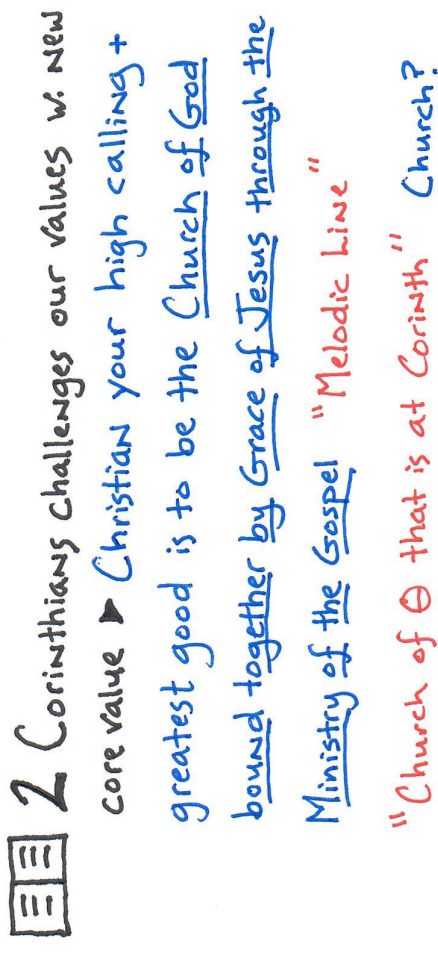 2 Corinthians challenges our values w. New
core value ▸ Christian your high calling +
greatest good is to be the Church of God
bound together by Grace of Jesus through the
Ministry of the Gospel "Melodic Line"
"Church of Θ that is at Corinth" Church?